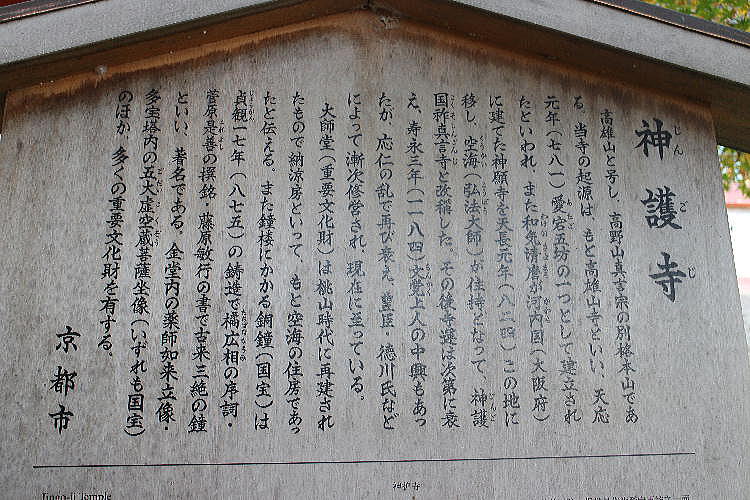 神護寺
高雄山と号し、高野山真言宗の別格本山であ
る。当寺の起源は、もと高雄山寺といい、天応
元年(七八一)愛宕五坊の一つとして建立され
たといわれ、また和気清麿が河内国(大阪府)
に建てた神願寺を天長元年(八二四)この地に
移し、空海(弘法大師)が住持となって、神護
国祚真言寺と改称した。その後寺運は次第に衰
え、寿永三年(一一八四)文覚上人の中興もあっ
たが、応仁の乱で再び衰え、豊臣・徳川氏など
によって漸次修営され、現在に至っている。
大師堂(重要文化財)は桃山時代に再建され
たもので納涼房といって、もと空海の住房であっ
たと伝える。また鐘楼にかかる銅鐘(国宝)は
貞観一七年(八七五)の鋳造で橘広相の序詞・
菅原是善の撰銘・藤原敏行の書で古来三絶の鐘
といい、著名である。金堂内の薬師如来立像・
多宝塔内の五大虚空蔵菩薩坐像(いずれも国宝)
のほか、多くの重要文化財を有する。
京都市
Jingo-ji Temple
神护寺